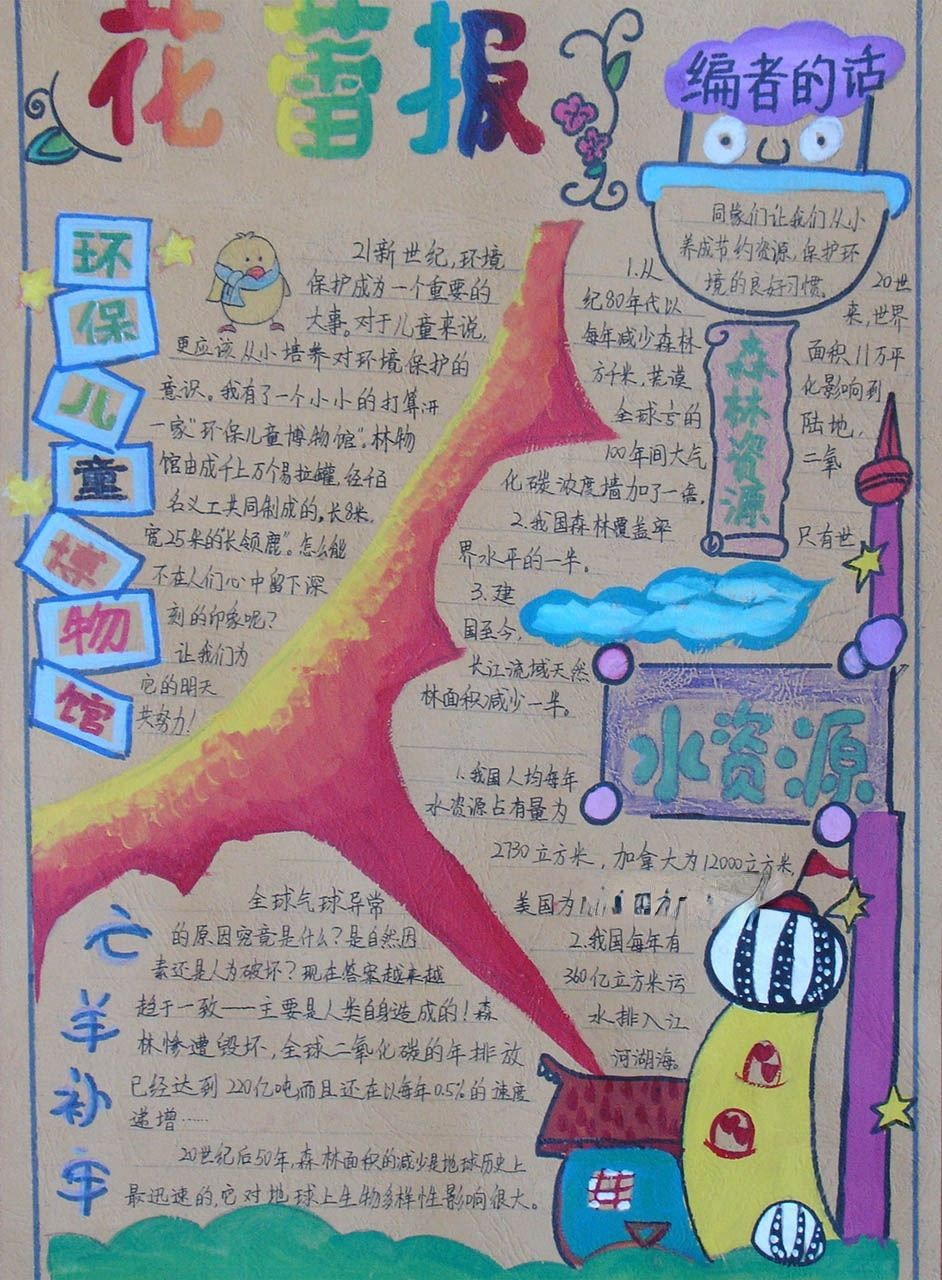 花蕾报
编者的话
同家们让我们从小
养成节约资源,保护环
境的良好习惯。
环保儿童博物馆
21新世纪,环境
保护成为一个重要的
大事。对于儿童来说,
更应该从小培养对环境保护的
意识。我有了一个小小的打算开
一家"环保儿童博物馆"。林物
馆由成千上万个易拉罐,经千百
名义工共同制成的。长8米,
宽25米的"长颈鹿"。怎么能
不在人们心中留下深
刻的印象呢?
让我们为
它的明天
共努力!
森林资源
1.从 20世
纪80年代以 来,世界
每年减少森林 面积11万平
方千米,荒漠 化影响到
全球专的 陆地,
100年间大气 二氧
化碳浓度增加了一倍。
2.我国森林覆盖率 只有世
界水平的一半。
3.建
国至今,
长江流域天然
林面积减少一半。
水资源
1.我国人均每年
水资源占有量为
2730立方米,加拿大为12000立方米,
美国为
2.我国每年有
360亿立方米污
水排入江
河湖海。
亡羊补牢
全球气球异常
的原因究竟是什么?是自然因
素还是人为破坏?现在答案越来越
趋于一致——主要是人类自身造成的!森
林惨遭毁坏,全球二氧化碳的年排放
已经达到220亿吨而且还在以每年0.5%的速度
递增……
20世纪后50年,森林面积的减少是地球历史上
最迅速的,它对地球上生物多样性影响很大。